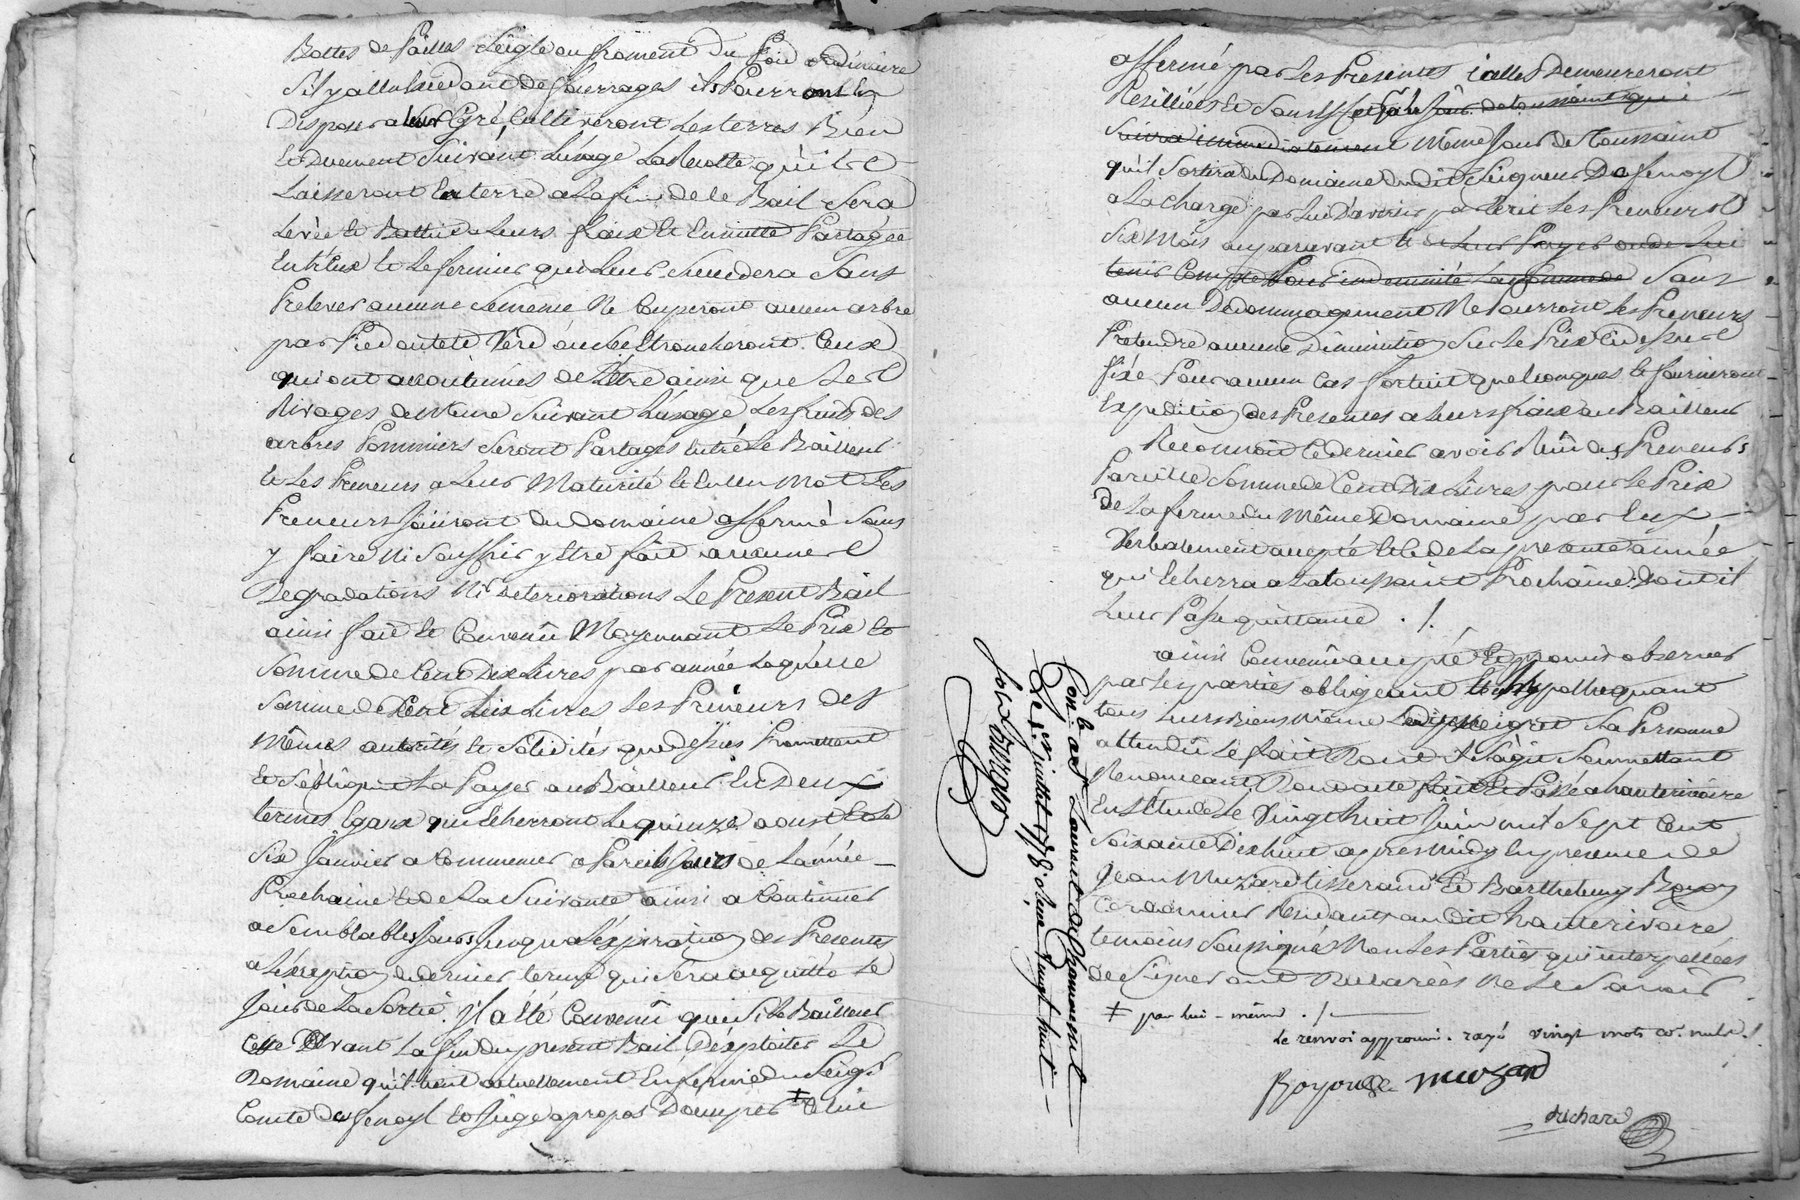 Bottes de Pailles Seigle ou froment Du Poid ordinaire
S'il y a Excedant de fourrages ils Pourront En
Disposer a leur Gré, Cultiveront Les terres Bien
Et Duement Suivant L'usage La Recolte qu'ils
Laisseront En terre a La fin de Ce Bail Sera
Levée Et Battue a Leurs fraix Et Ensuitte Partagée
Entr'Eux Et Le fermier qui Leur Succedera Sans
Prelever aucune Semence Ne Couperont aucun arbre
par Pied ou tete Verd ou Sec Etroncheront Ceux
qui ont accoutumés de L'Etre ainsi que Les
Rivages de Riviere Suivant L'usage Les fruits des
arbres Pommiers Seront Partagés Entre Le Bailleur
Et Les Preneurs a Leur Maturité Et En Un Mot Les
Preneurs Jouiront du Domaine affermé Sans
y faire Ni Souffrir y Etre fait aucunes
Degradations Ni deteriorations Le Present Bail
ainsi fait Et Convenû Moyennant Le Prix Et
Somme de Cent Dix Livres par année Laquelle
Somme de Cent Dix Livres Les Preneurs des
Mêmes autorités Et Solidités que dessus Promettent
Et S'obligent La Payer au Bailleur En Deux
termes Egaux qui Echerront Le quinze aoust Et Le
Six Janvier a Commencer a Pareils Jours de L'année
Prochaine Et de La Suivante ainsi a Continuer
a Semblables Jours Jusqu'a L'Expiration des Presentes
a L'exception du dernier terme qui Sera acquitté Le
Jour de La Sortie. Il a Eté Convenû que Si Le Bailleur
Cesse Avant La fin du present Bail D'exploiter Le
Domaine qu'il tient actuellement En ferme du Seigr
Comte De fenoyl Et Juge a propos D'ocuper ‡ Celui
affermé par Les Presentes icelles Demeureront
Resilliées Et Sans Effet Par Le Jour de toussaint qui
Suivra immediatement Même Jour de Toussaint
qu'il Sortira du Domaine du dit Seigneur De fenoyl
a La charge par Lui D'avertir par Ecrit Les Preneurs
Six Mois auparavant Et de Leur Payer ou de Lui
tenir Compte Pour indemnité La Somme de Sans
aucun Dedommagement Ne Pourront Les Preneurs
Pretendre aucune Diminution Sur Le Prix Cy dessus
fixé Pour aucun Cas fortuit quelconques Et fourniront
Expedition des Presentes a Leurs fraix au Bailleur
Reconnoit Ce dernier avoir Reçû des Preneurs
Pareille Somme de Cent Dix Livres pour Le Prix
De La ferme du Même Domaine par Eux
Verbalement accepté Et de La presente année
qui Echerra a La toussaint Prochaine. Dont il
Leur Passe quittance . /.
ainsi Convenû accepté Et promis observer
par Les parties obligeant Et hypothequant
tous Leurs Biens Même Le dit Sa Personne
attendu Le fait Dont il S'agit Soumettant
Renonceant Dont acte fait Et Passé a hauterivoire
En L'Etude Le Vingt huit Juin mil Sept Cent
Soixante Dix huit apres Midy En presence de
Jean Muzard tisserand Et Barthelemy Boyon
Cordonnier Residants au dit hauterivoire
temoins Soussignés Non Les Parties qui interpellées
de Signer ont Declarées Ne Le Savoir
‡ par lui-même ./.
Le renvoi approuvé. rayé vingt mots co. nuls./.
Boyon Muzard
duchard
Con.le a St Laurent de Chamousset
Le Juillet 1778. Reçu vingt huit